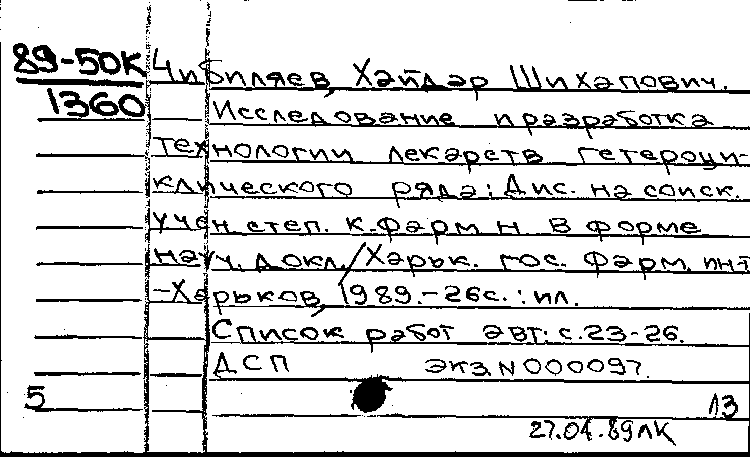 89-50К Чибиляев, Хайдар Шихапович.
1360 Исследование и разработка
технологии лекарств гетероци-
клического ряда: Дис. на соиск.
учен. степ. к. фарм. н. в форме
науч. докл./Харьк. гос. фарм. ин-т
-Харьков, 1989.-26с.: ил.
Список работ авт.: с. 23-26.
ДСП экз. N 000097.
5 13
27.04.89 ЛК